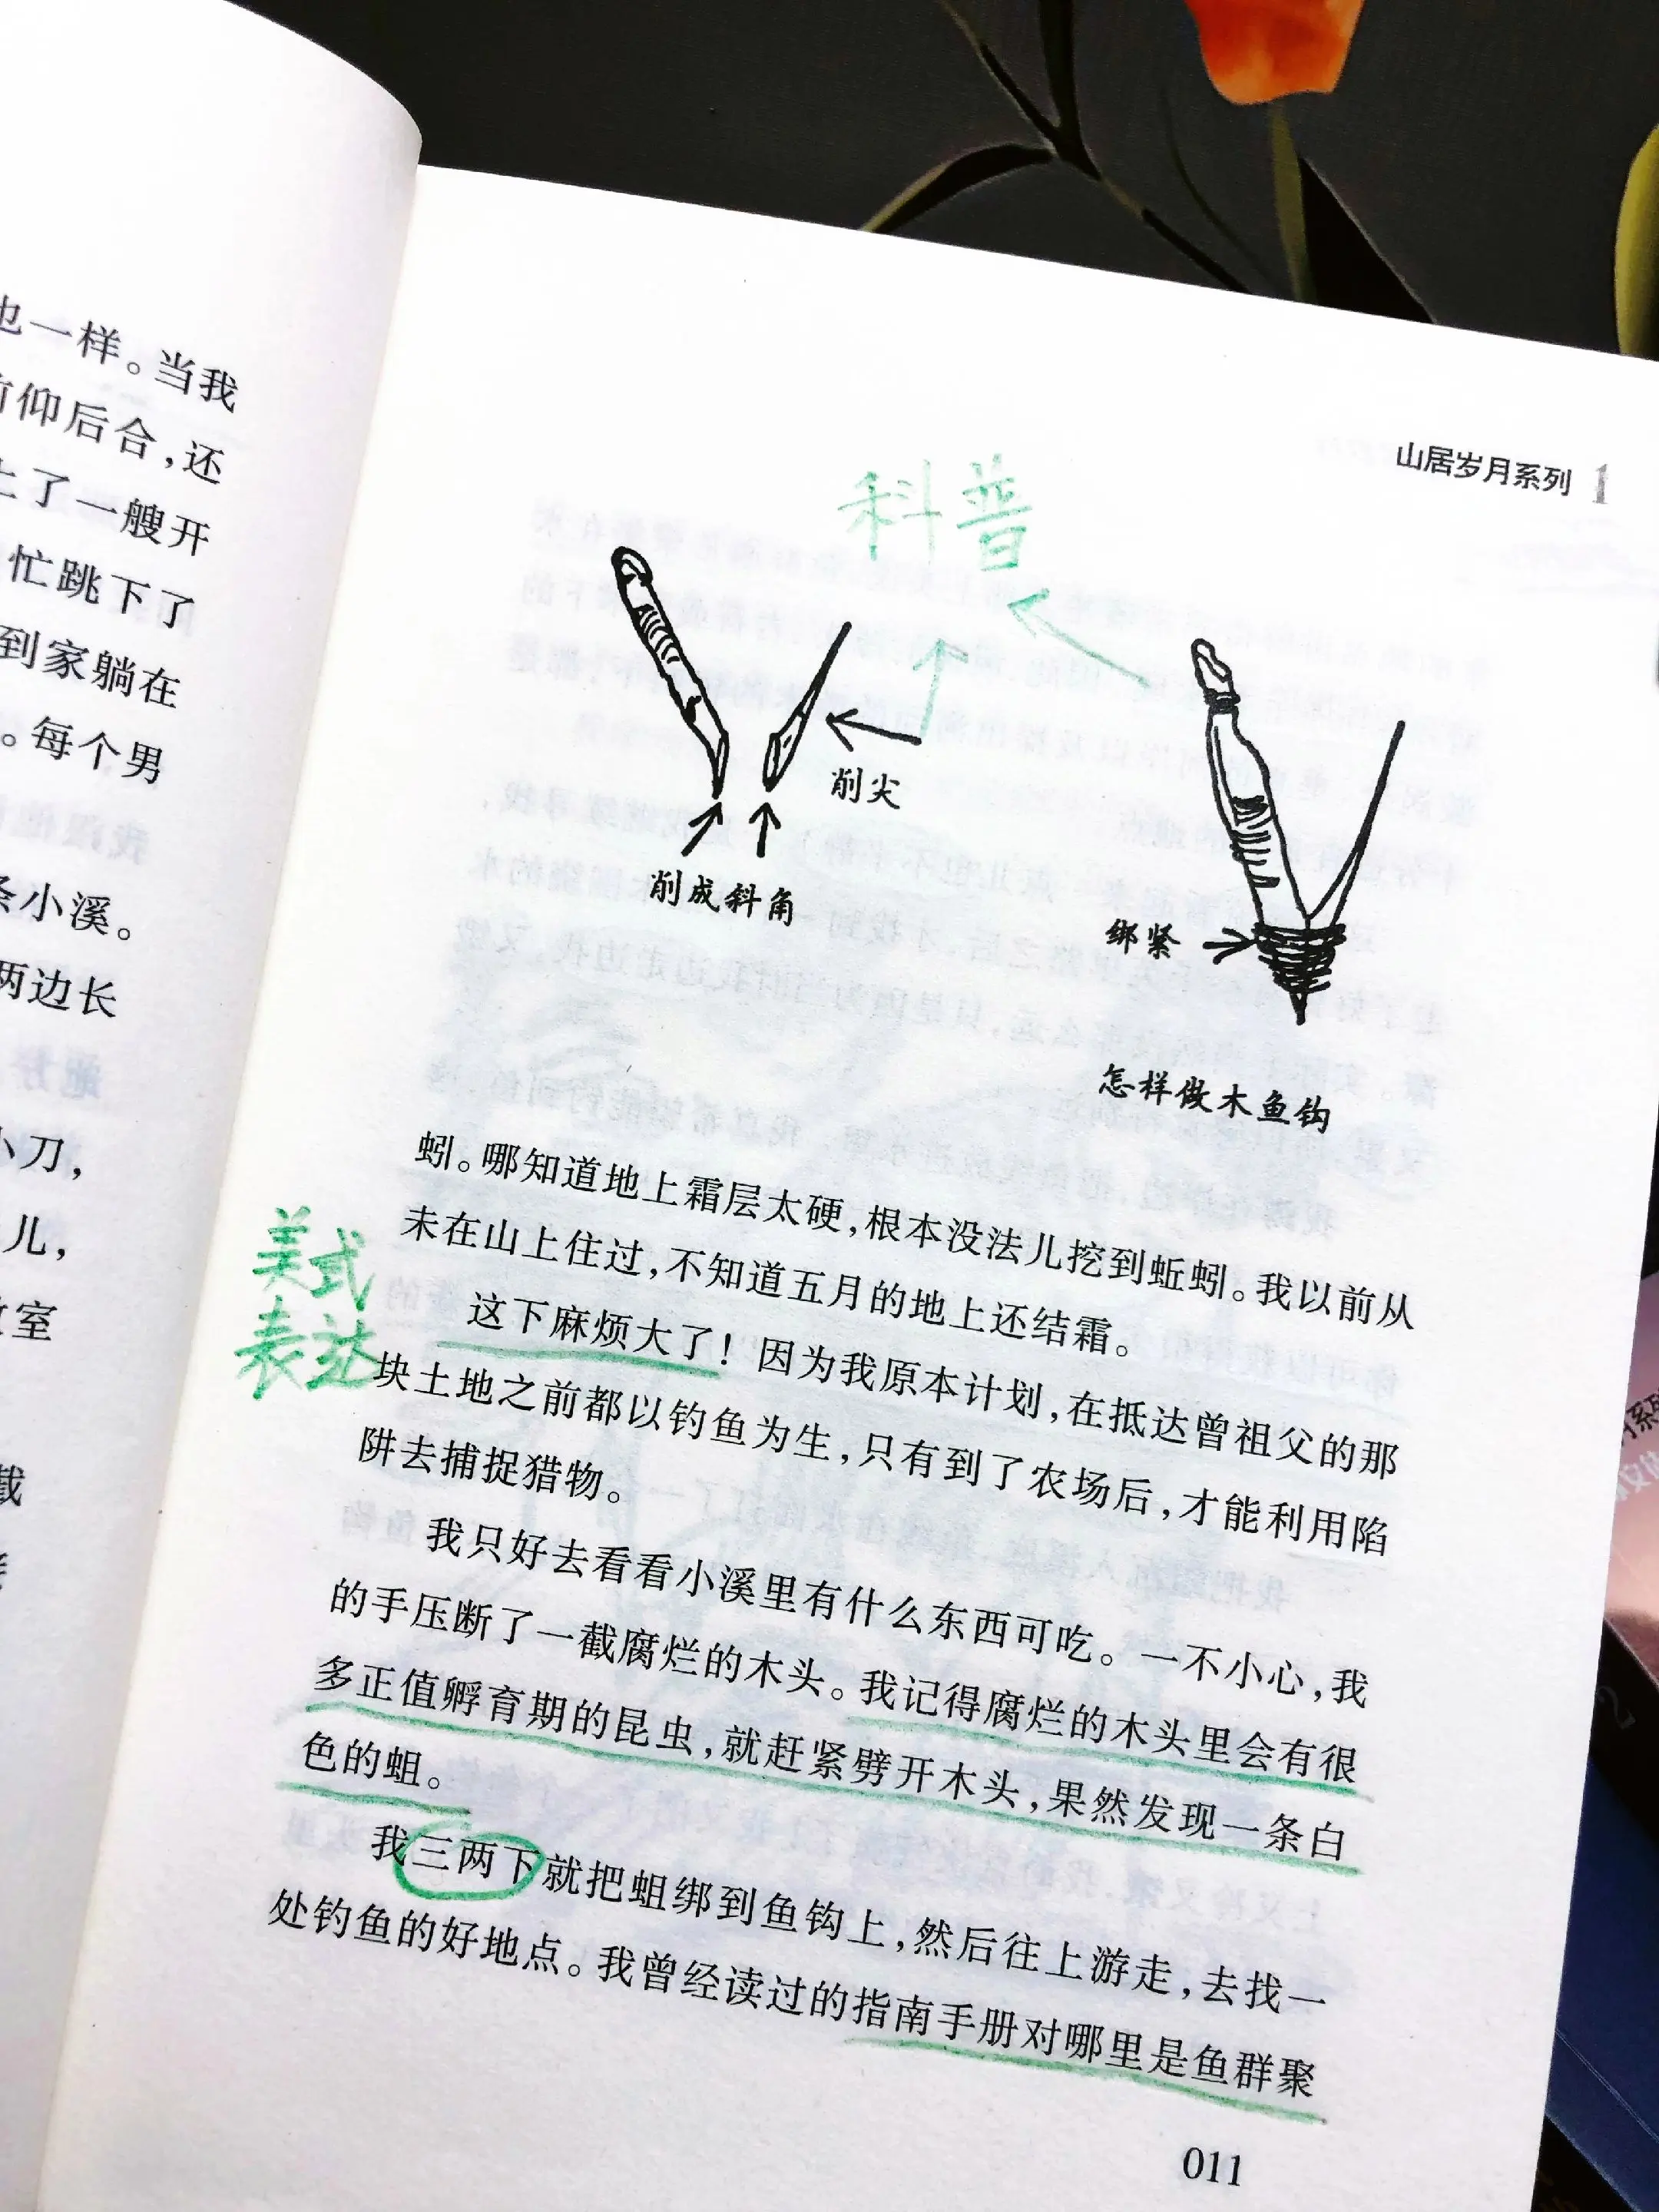 也一样。当我
前仰后合,还
上了一艘开
忙跳下了
到家躺在
。每个男
条小溪。
两边长
小刀,
儿,
室
截
山居岁月系列 1
科普
削尖
削成斜角
绑紧
怎样做木鱼钩
蚓。哪知道地上霜层太硬,根本没法儿挖到蚯蚓。我以前从
未在山上住过,不知道五月的地上还结霜。
美式
表达
这下麻烦大了!因为我原本计划,在抵达曾祖父的那
块土地之前都以钓鱼为生,只有到了农场后,才能利用陷
阱去捕捉猎物。
我只好去看看小溪里有什么东西可吃。一不小心,我
的手压断了一截腐烂的木头。我记得腐烂的木头里会有很
多正值孵育期的昆虫,就赶紧劈开木头,果然发现一条白
色的蛆。
我三两下就把蛆绑到鱼钩上,然后往上游走,去找一
处钓鱼的好地点。我曾经读过的指南手册对哪里是鱼群聚
011